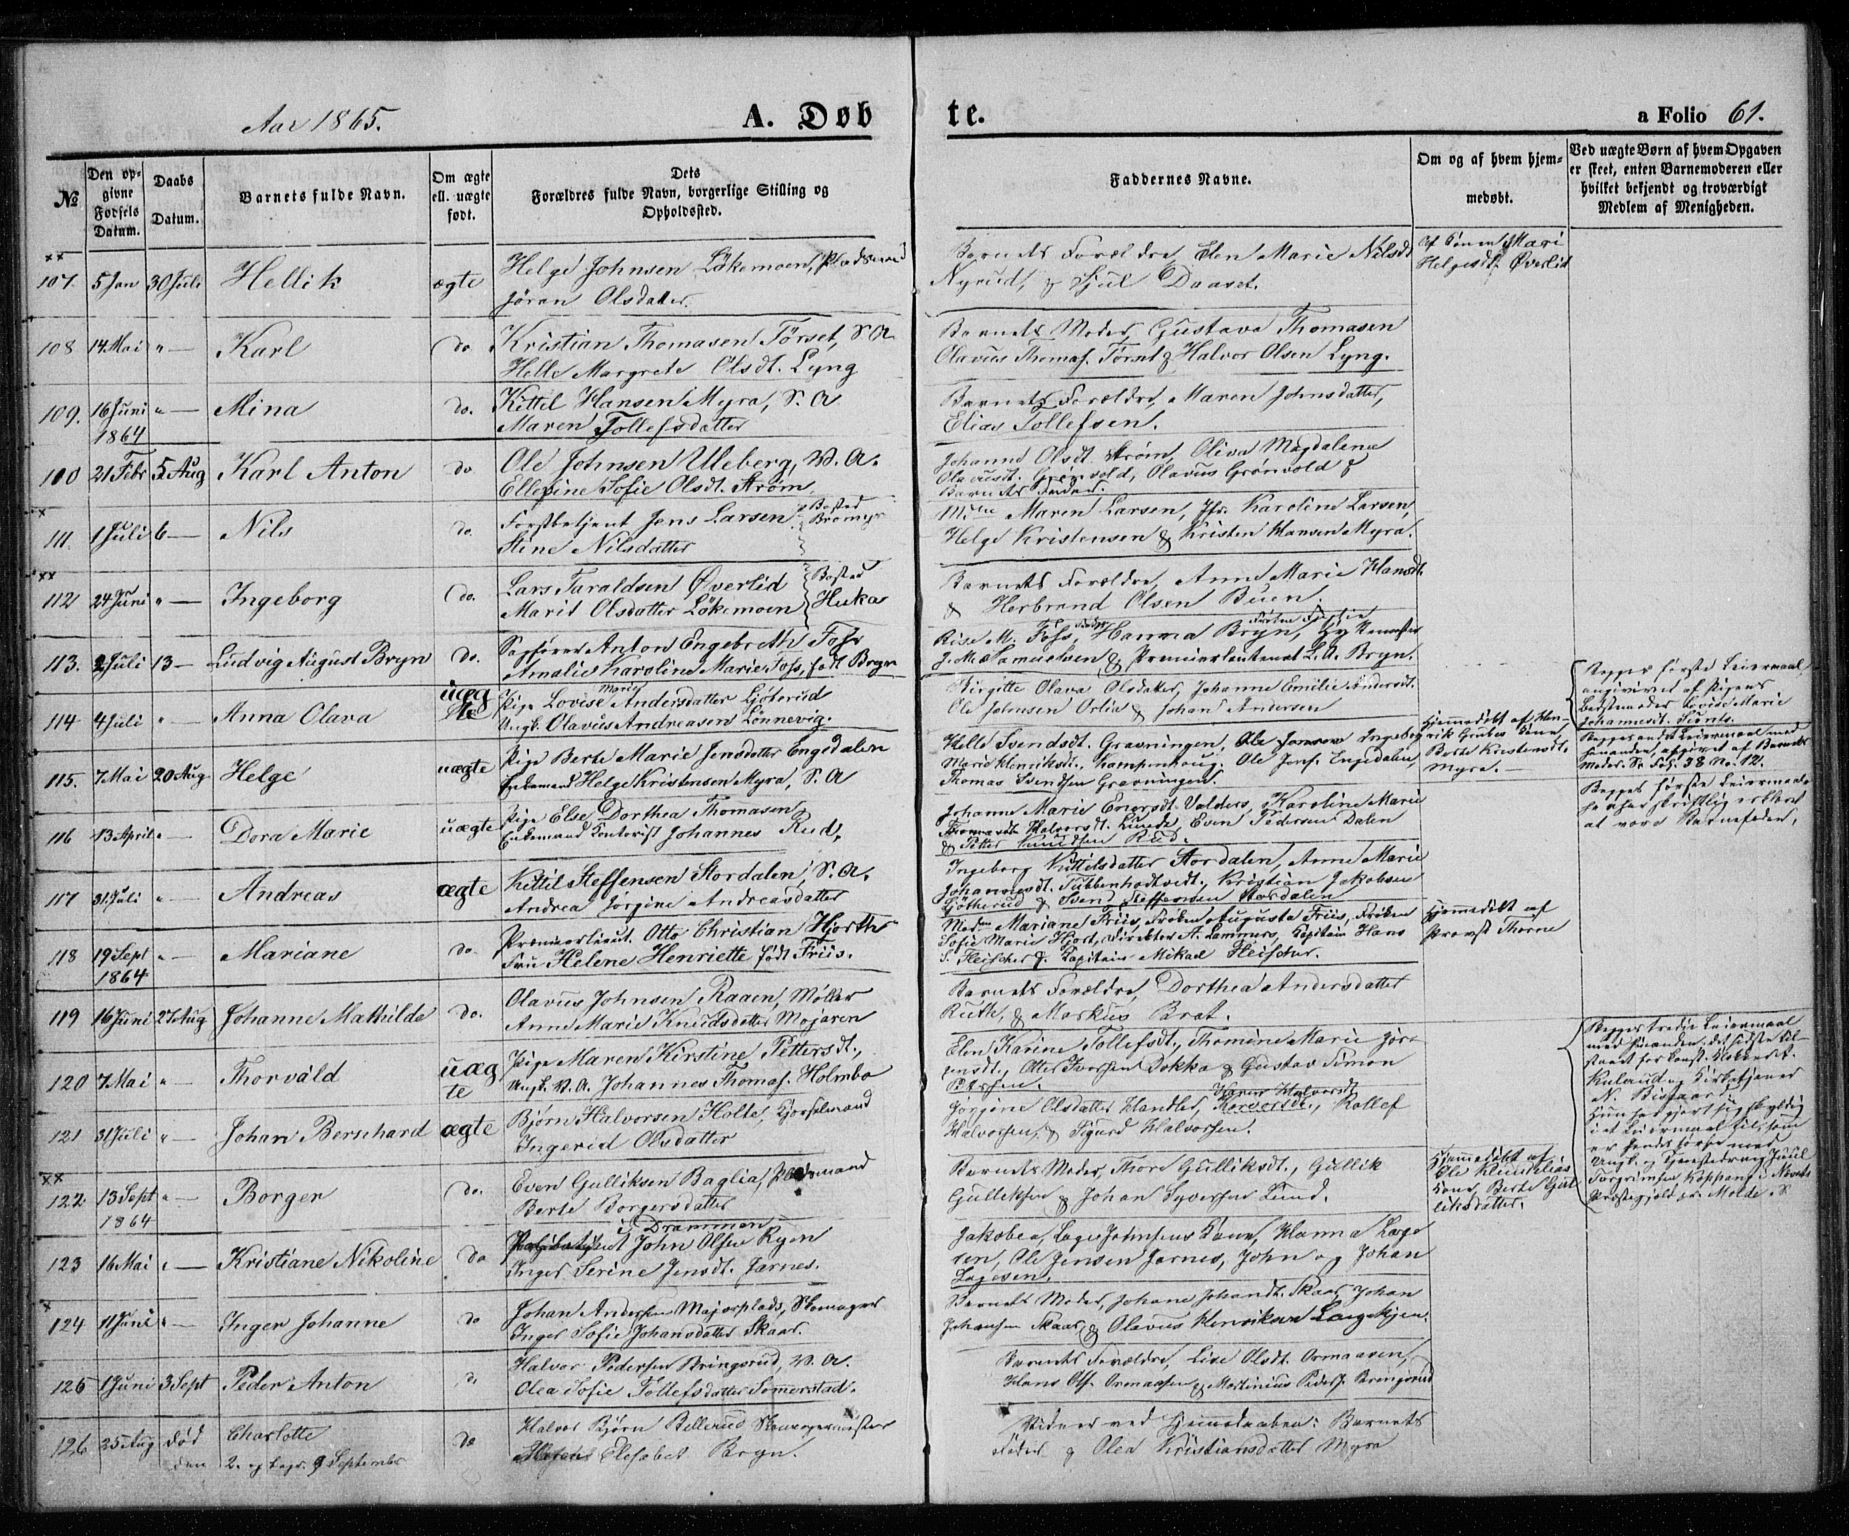 Aar 1865.
A. Døb
te.
a Folio 61.
№
Den op-
givne
Fødsels
Datum.
Daabs
Datum.
Barnets fulde Navn.
Om ægte
ell. uægte
født.
Dets
Forældres fulde Navn, borgerlige Stilling og
Opholdssted.
Faddernes Navne.
Om og af hvem hjem-
medøbt.
Ved uægte Børn af hvem Opgaven
er skeet, enten Barnemoderen eller
hvilket bekjendt og troværdigt
Medlem af Menigheden.
xx
107. 5 Jan 30 Juli Hellik ægte
Helge Johnsen Løkemoen, Pladsmand
Jøran Olsdatter.
Barnets Forældre, Elen Marie Nilsdt
Nyrud, & Hjul Daaset.
Af Konen Mari
Helgesdt. Øverlid
108 14 Mai " Karl do
Kristian Thomasen Tørset, S. A
Helle Margrete Olsdt. Lyng
Barnets Moder, Gustava Thomasen
Olavus Thomas. Tørset & Halvor Olsen Lyng.
109. 16 Juni " Mina do.
1864
Kittil Hansen Myra, S. A
Maren Tollefsdatter
Barnets Forældre, Maren Johnsdatter,
Elias Tollefsen.
110 21 Febr 5 Aug Karl Anton do
Ole Johnsen Uleberg, V. A.
Ellevine Sofie Olsdt. Strøm
Johanne Olsdt. Strøm, Oliva Magdalena
Olavusdt. Grønvold, Olavus Grønvold &
Barnets Fader.
x
111. 1 Juli 6 Nils do
Forstbetjent Jens Larsen
Stine Nilsdatter
Bosted
Bromyr
Maren Larsen, Jfr. Karoline Larsen,
Helge Kristensen & Kristen Hansen Myra.
xx
112 24 Juni " Ingeborg do.
Lars Taraldsen Øverlid
Marit Olsdatter Løkemoen
Bosted
Huka
Barnets Forældre, Anne Marie Hansdt.
& Herbrand Olsen Buen.
113. 2 Juli 13 Ludvig August Bryn do.
Sagfører Anton Engebreth Foss
Amalie Karoline Marie Foss, født Bryn
Rise M. Foss, Hanna Bryn,
J. M. Samuelsen & Premierlieutenat L. A. Bryn.
114 4 Juli " Anna Olava uæg
te
Pige Lovise Marie Andersdatter Gjøterud
Ungk. Olavus Andreasen Lønnevig.
Birgitte Olava Olsdatter, Johanne Emilie Andersdt.
Ole Johnsen Orlia & Johan Andersen
Begges første Leiermaal
angivet af Pigens
Bedstemoder Lovise Marie
Johannesdt.
115. 7 Mai 20 Aug. Helge uægte
Pige Berte Marie Jensdatter Engedalen
Enkemand Helge Kristensen Myra, S. A
Helle Svendsdt. Gravningen, Ole Jensen Ingeberg
Marie Henriksdt. Kampenhaug. Ole Jens. Engedalen,
Thomas Svendsen Gravningen.
Hjemmedøbt af Hen-
rik Grubes Kone,
Berte Kristensdt.
Myra.
Begges andet Leiermaal med
hinanden, angivet af Barnets
Moder. Se fol. 38 No. 12.
116 13 April " Dora Marie uægte
Pige Else Dorthea Thomasen
Enkemand Kontorist Johannes Rud.
Johanne Marie Enersdt. Valders, Karoline Marie
Thomasdt. Halvorsdt. Lunde, Even Pedersen Dalen
& Peter Knudsen Rud.
Begges første Leiermaal
han har skriftlig erkjent
at være Barnefader.
117 31 Juli " Andreas ægte
Kittil Steffensen Stordalen, S. A.
Andrea Jorgine Andreasdatter
Ingeborg Kittelsdatter Stordalen, Anne Marie
Johannesdt. Tubbenhodtvedt. Kristian Jakobsen
Gjøtherud & Svend Steffensen Stordalen
118 19 Sept " Mariane do.
1864
Premierlieut. Otto Christian Hjorth
Fru Helene Henriette født Friis.
Mariane Friis, Frøken Augusta Friis, Frøken
Sofie Marie Hjort, Direktør A. Lammers, Kapitein Hans
S. Fleischer & Kapitein Mikael Fleischer.
Hjemmedøbt af
Provst Thorne
119 16 Juni 27 Aug Johanne Mathilde do.
Olavus Johnsen Raaen, Møller
Anne Marie Knudsdatter Mojaren
Barnets Forældre, Dorthea Andersdatter
Ruth, & Markus Brat.
120 7 Mai " Thorvald uæg
te
Pige Maren Kirstine Pettersdt.,
Ungk. V. A. Johannes Thomas. Holmbo
Elen Karine Tollefsdt., Thomine Marie Jør-
gensdt., Otter Iversen Dokka & Gustav Simon
Petersen.
Begges tredie Leiermaal
med hinanden, det sidste til-
staaet for konst. Klokker
og Kirketjener
N. Bisgaard.
Hun har gjort sig skyldig
i et Leiermaal tilforn
121 31 Juli " Johan Bernhard ægte
Bjørn Halvorsen Holte, Gjørtlemand
Ingerid Olsdatter
Jørgine Olsdatter Handler, Karen Halvorsdt., Rollef
Halvorsen, & Sigurd Halvorsen.
xx
122 13 Sept " Borger do.
1864
Even Gulliksen Baglia, Pladsmand
Berte Borgersdatter
Barnets Moder, Thore Gulliksdt., Gullik
Gulliksen & Johan Syversen Lund.
Hjemmedøbt af
Ole
Kone, Berte Gul-
liksdatter.
123 16 Mai " Kristiane Nikoline do
i Drammen
John Olsen Ryen
Inger Serine Jensdt. Jarnes.
Jakobea, Lage Johnsens Kone, Hanna Lage-
sen, Ole Jensen Jarnes, John og Johan
Lagesen.
x
124 11 Juni " Inger Johanne do
Johan Andersen Majorplads, Skomager
Inger Sofie Johansdatter Skaar.
Barnets Moder, Johane Johansdt. Skaar, Johan
Johansen Skaar, & Olavus Henriksen Langekjen.
125 1 Juni 3 Sept Peder Anton do
Halvor Pedersen Bringsrud, V. A.
Olea Sofie Tollefsdatter Somerstad.
Barnets Forældre, Lise Olsdt. Ormaasen,
Hans Ols. Ormaasen & Martinius Peders. Bringsrud
126 25 Aug død Charlotte do
den 2. og begr. 9 September
Halvor Bjørn Bellerud Skovvogermester
Elisabet Bryn.
Vidner ved Hjemmedaaben: Barnets
Fader & Olea Kristiansdatter Myra